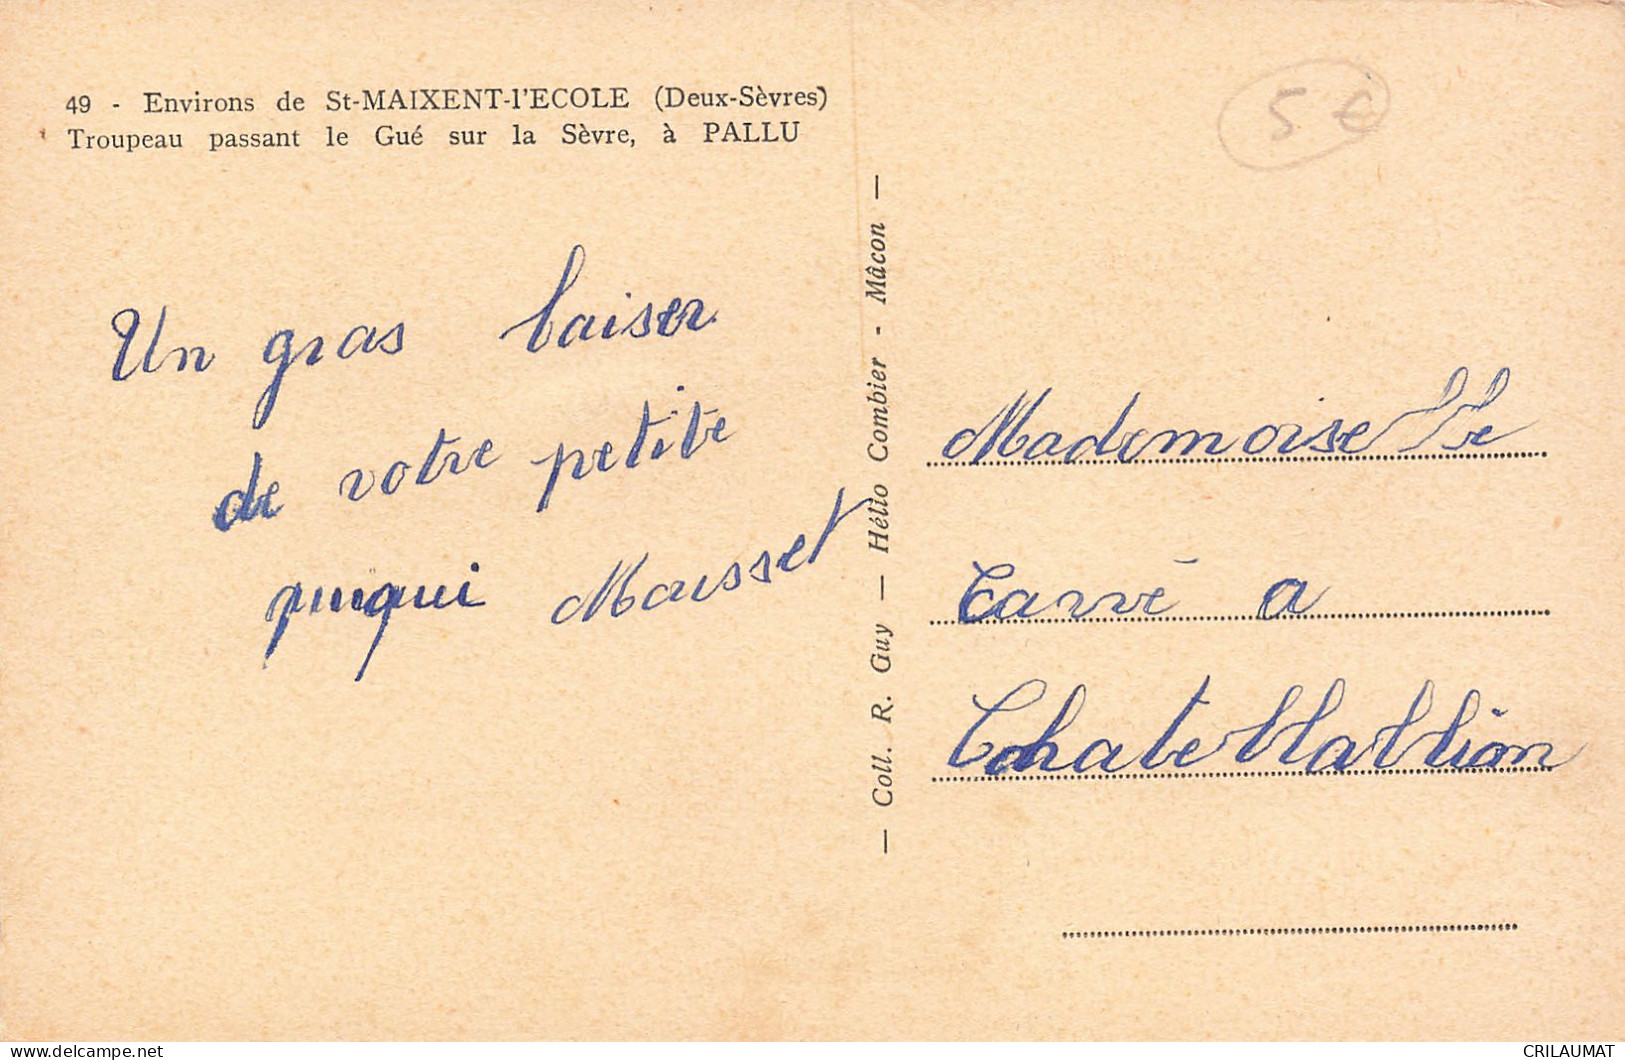 49 - Environs de St-MAIXENT-l'ECOLE (Deux-Sèvres)
Troupeau passant le Gué sur la Sèvre, à PALLU
5 €
Un gras baiser
de votre petite
— Coll. R. Guy — Hélio Combier - Mâcon —
Mademoiselle
Carré a
www.delcampe.net
CRILAUMAT